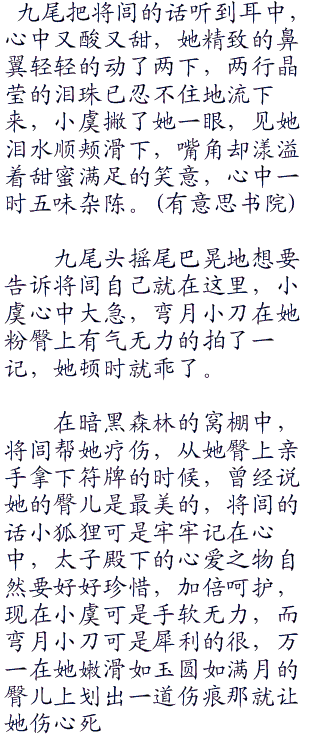 九尾把将闾的话听到耳中，
心中又酸又甜，她精致的鼻
翼轻轻的动了两下，两行晶
莹的泪珠已忍不住地流下
来，小虞撇了她一眼，见她
泪水顺颊滑下，嘴角却漾溢
着甜蜜满足的笑意，心中一
时五味杂陈。(有意思书院)
九尾头摇尾巴晃地想要
告诉将闾自己就在这里，小
虞心中大急，弯月小刀在她
粉臀上有气无力的拍了一
记，她顿时就乖了。
在暗黑森林的窝棚中，
将闾帮她疗伤，从她臀上亲
手拿下符牌的时候，曾经说
她的臀儿是最美的，将闾的
话小狐狸可是牢牢记在心
中，太子殿下的心爱之物自
然要好好珍惜，加倍呵护，
现在小虞可是手软无力，而
弯月小刀可是犀利的很，万
一在她嫩滑如玉圆如满月的
臀儿上划出一道伤痕那就让
她伤心死